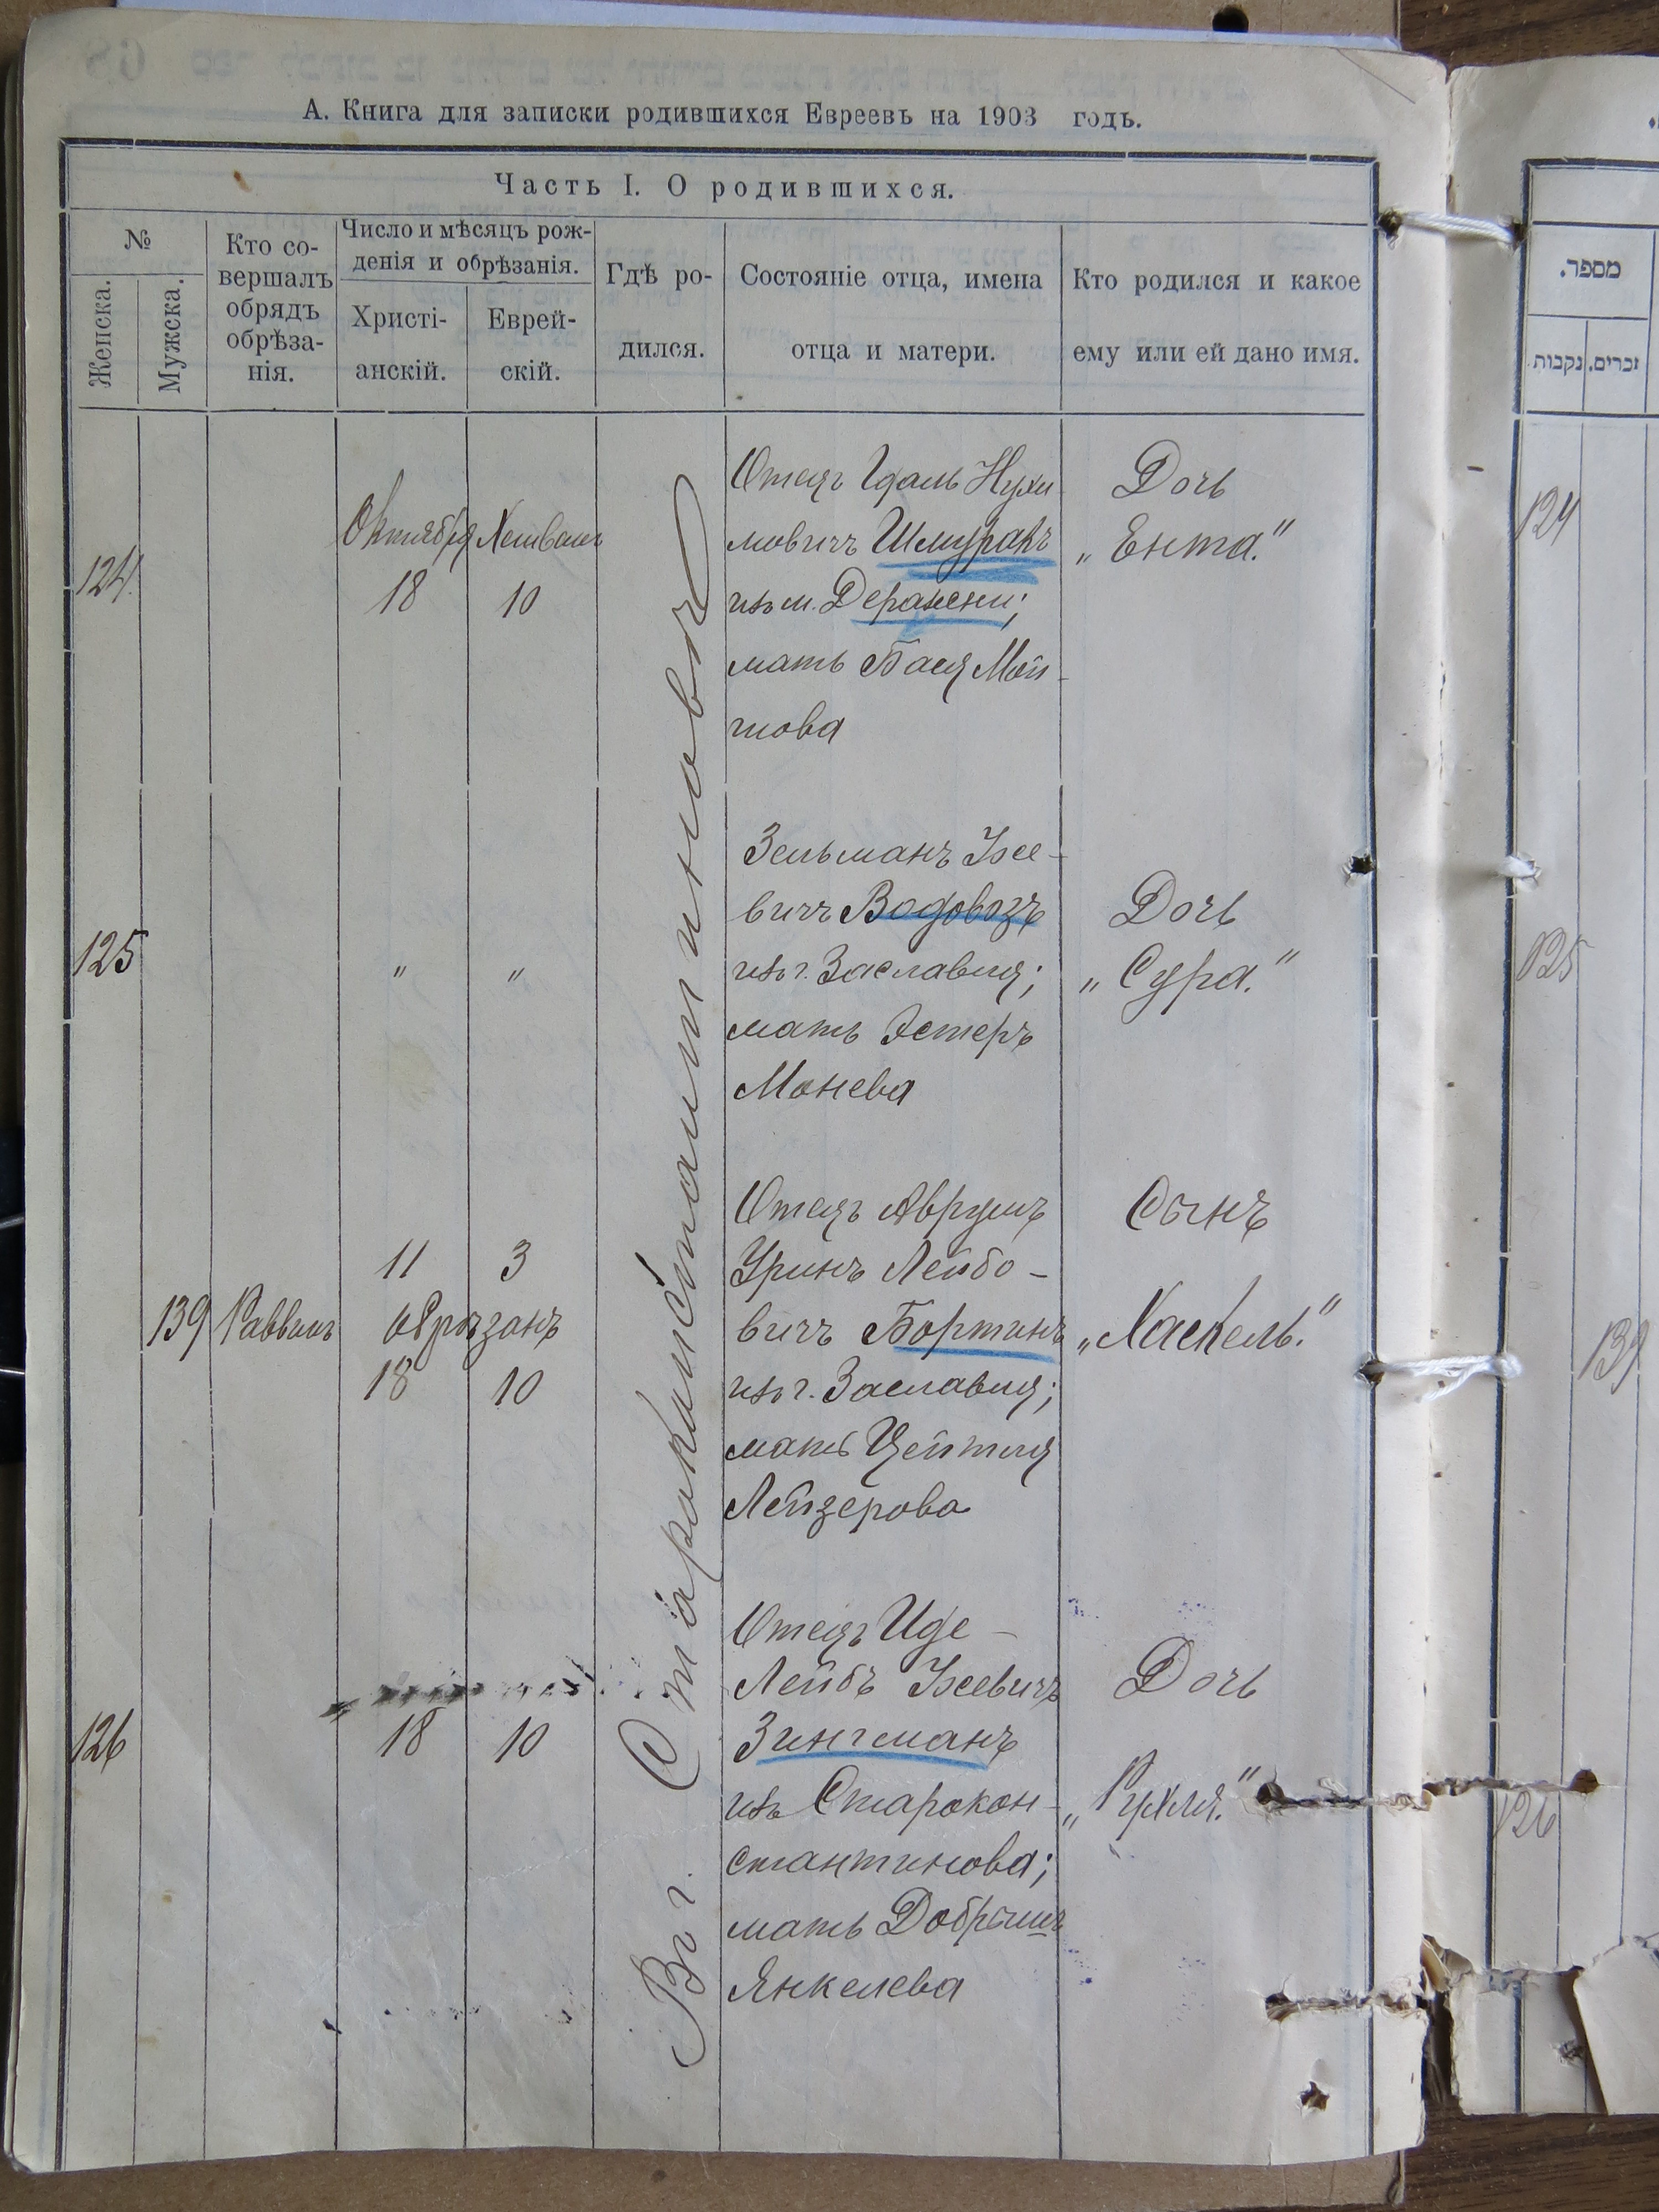 А. Книга для записки родившихся Евреевъ на 1903 годъ.
Часть I. О родившихся.
№
Женска.
Мужска.
Кто со-
вершалъ
обрядъ
обрѣза-
нія.
Число и мѣсяцъ рож-
денія и обрѣзанія.
Христі-
анскій.
Еврей-
скій.
Гдѣ ро-
дился.
Состояніе отца, имена
отца и матери.
Кто родился и какое
ему или ей дано имя.
Въ г. Староконстантиновѣ
124.
Октября Хешванъ
18 10
Отецъ Идаль Нухи-
мовичъ Шмуракъ
изъ м. Деражни;
мать Бася Мой-
шова
Дочь
„Ента."
125
" "
Зельманъ Усе-
вичъ Водовозъ
изъ г. Заславля;
мать Эстеръ
Монева
Дочь
„Сура."
139 Раввинъ
11 3
обрѣзанъ
18 10
Отецъ Аврумъ
Уринъ Лейбо-
вичъ Бортникъ
изъ г. Заславля;
мать Цейтля
Лейзерова
Сынъ
„Хаскель."
126
18 10
Отецъ Иде-
Лейбъ Усевичъ
Зингманъ
изъ Старокон-
стантинова;
мать Добрышъ
Янкелева
Дочь
„Рухля."
מספר.
נקבות
זכרים.
124
125
139
126